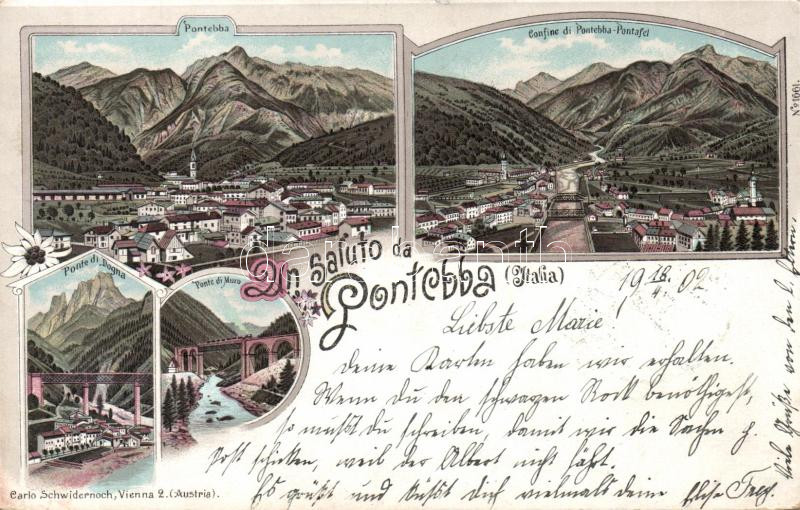 Pontebba
Confine di Pontebba-Pontafel
Nº 1661.
Un Saluto da
Pontebba (Italia)
Ponte di Dogna
Ponte di Muro
19 18/4. 02
Liebste Marie!
Deine Karten haben wir erhalten.
Wenn du den schwarzen Rock benöthigest,
so mußt du schreiben, damit wir die Sachen p.
Post schicken, weil der Albert nicht fährt.
Es grüßt und küßt Dich vielmals deine
Viele Grüße von den
Carlo Schwidernoch, Vienna 2. (Austria).